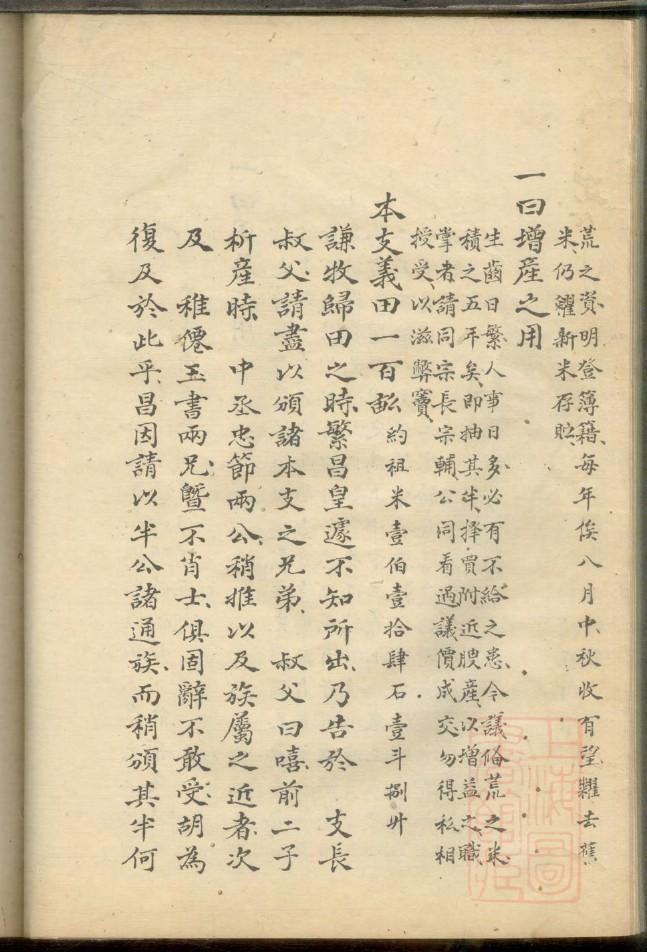 荒之資明登簿籍每年俟八月中秋收有望糶去舊
米仍糴新米存貯
一曰增產之用
生齒日繁人事日多必有不給之患今議俻荒之米
積之五年矣即抽其半擇買附近腴產以增益之職
掌者請同宗長宗輔公同看過議價成交勿得私相
授受以滋弊竇
本支義田一百畝約租米壹伯壹拾肆石壹斗捌升
謙牧歸田之時繁昌皇遽不知所出乃告於 支長
叔父請盡以頒諸本支之兄弟 叔父曰嘻前二子
析產時 中丞忠節兩公稍推以及族屬之近者次
及 稚僊玉書兩兄曁不肖士俱固辭不敢受胡為
復及於此乎昌因請以半公諸通族而稍頒其半何
上海圖
書館藏